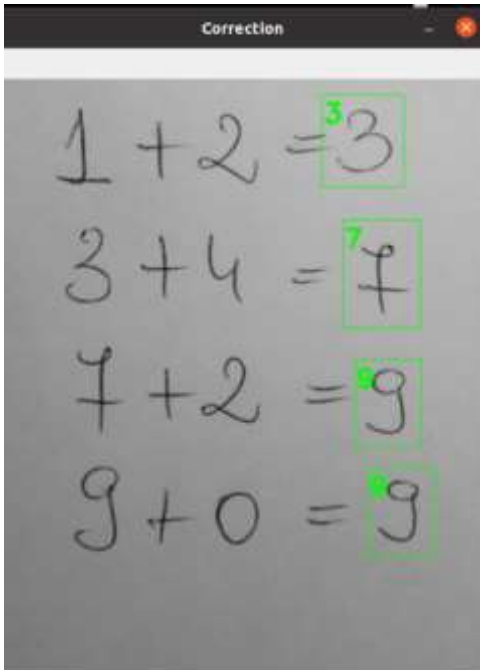 Correction
1 + 2 = 3 3
3 + 4 = 7 7
7 + 2 = 9 9
9 + 0 = 9